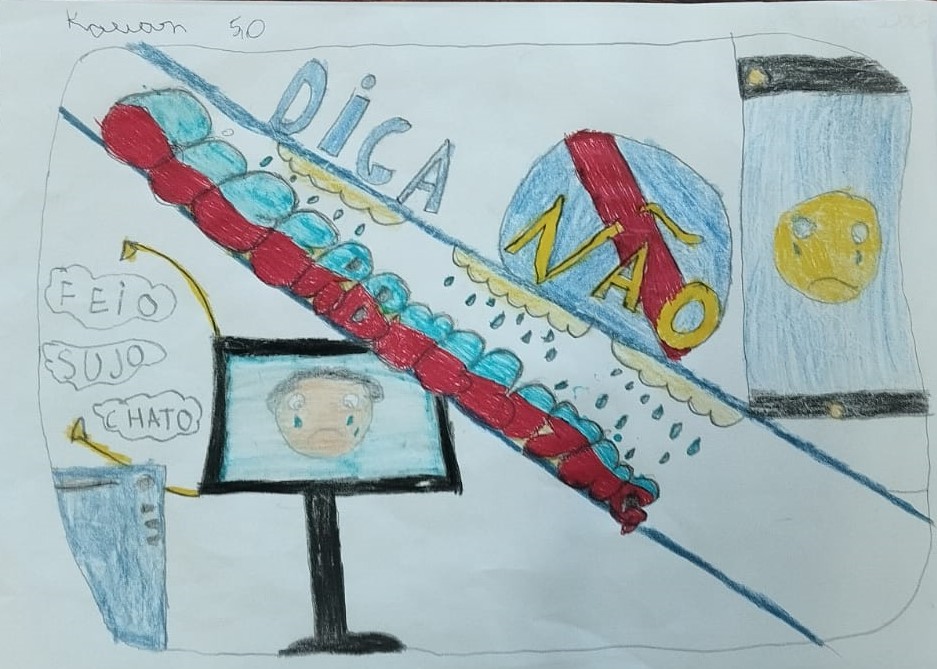 Kauan 5,0
DiGA
NÃO
FEiO
SUJO
CHATO